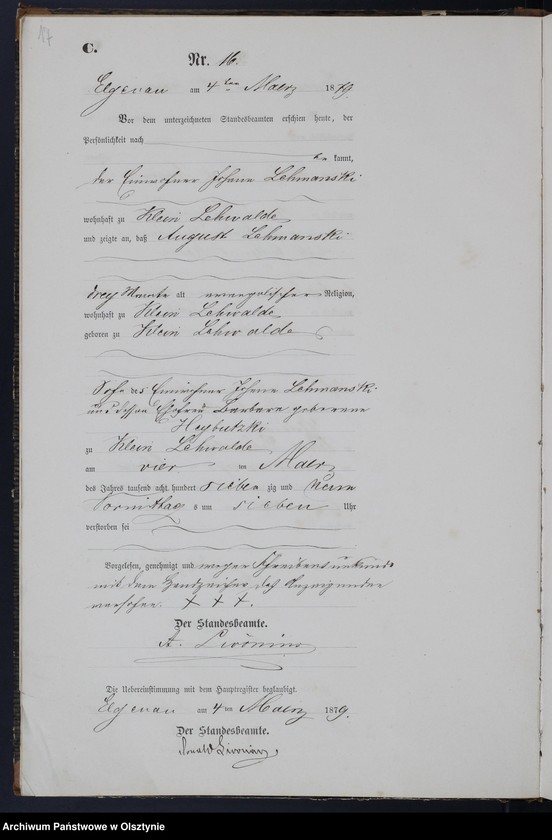 17
C.
Nr. 16.
Elgenau am 4ten Maerz 1879.
Vor dem unterzeichneten Standesbeamten erschien heute, der
Persönlichkeit nach
kannt,
der Einwohner Johann Lehmanski
wohnhaft zu Klein Lehwalde
und zeigte an, daß August Lehmanski
drey alt evangelischer Religion,
wohnhaft zu Klein Lehwalde
geboren zu Klein Lehwalde
Sohn des Einwohner Johann Lehmanski
und dessen Ehefrau Barbara geborene
Heybutzki
zu Klein Lehwalde
am vier ten Maerz
des Jahres tausend acht hundert sieben zig und Neun
Vormittag s um sieben Uhr
verstorben sei
Vorgelesen, genehmigt und wegen Schreibensunkunde
mit dem Handzeichen des Anzeigenden
versehen. + + +.
Der Standesbeamte.
A.
Die Uebereinstimmung mit dem Hauptregister beglaubigt.
Elgenau am 4 ten Maerz 1879.
Der Standesbeamte.
Archiwum Państwowe w Olsztynie